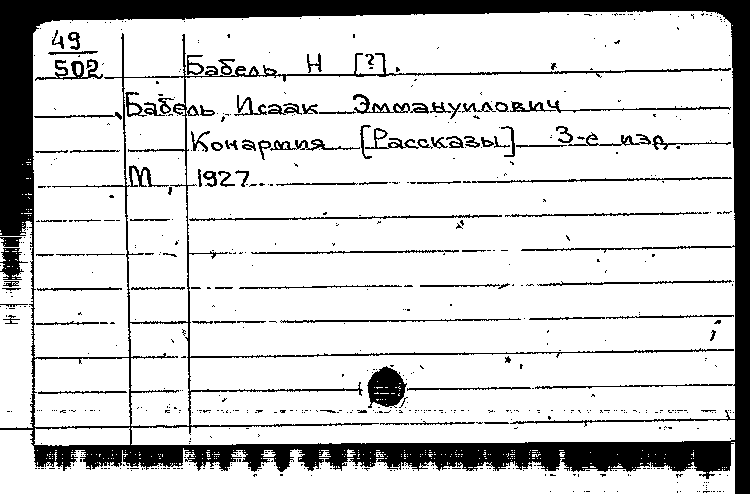 49
502
Бабель, Н [?].
Бабель, Исаак Эммануилович
Конармия [Рассказы] 3-е изд.
М, 1927